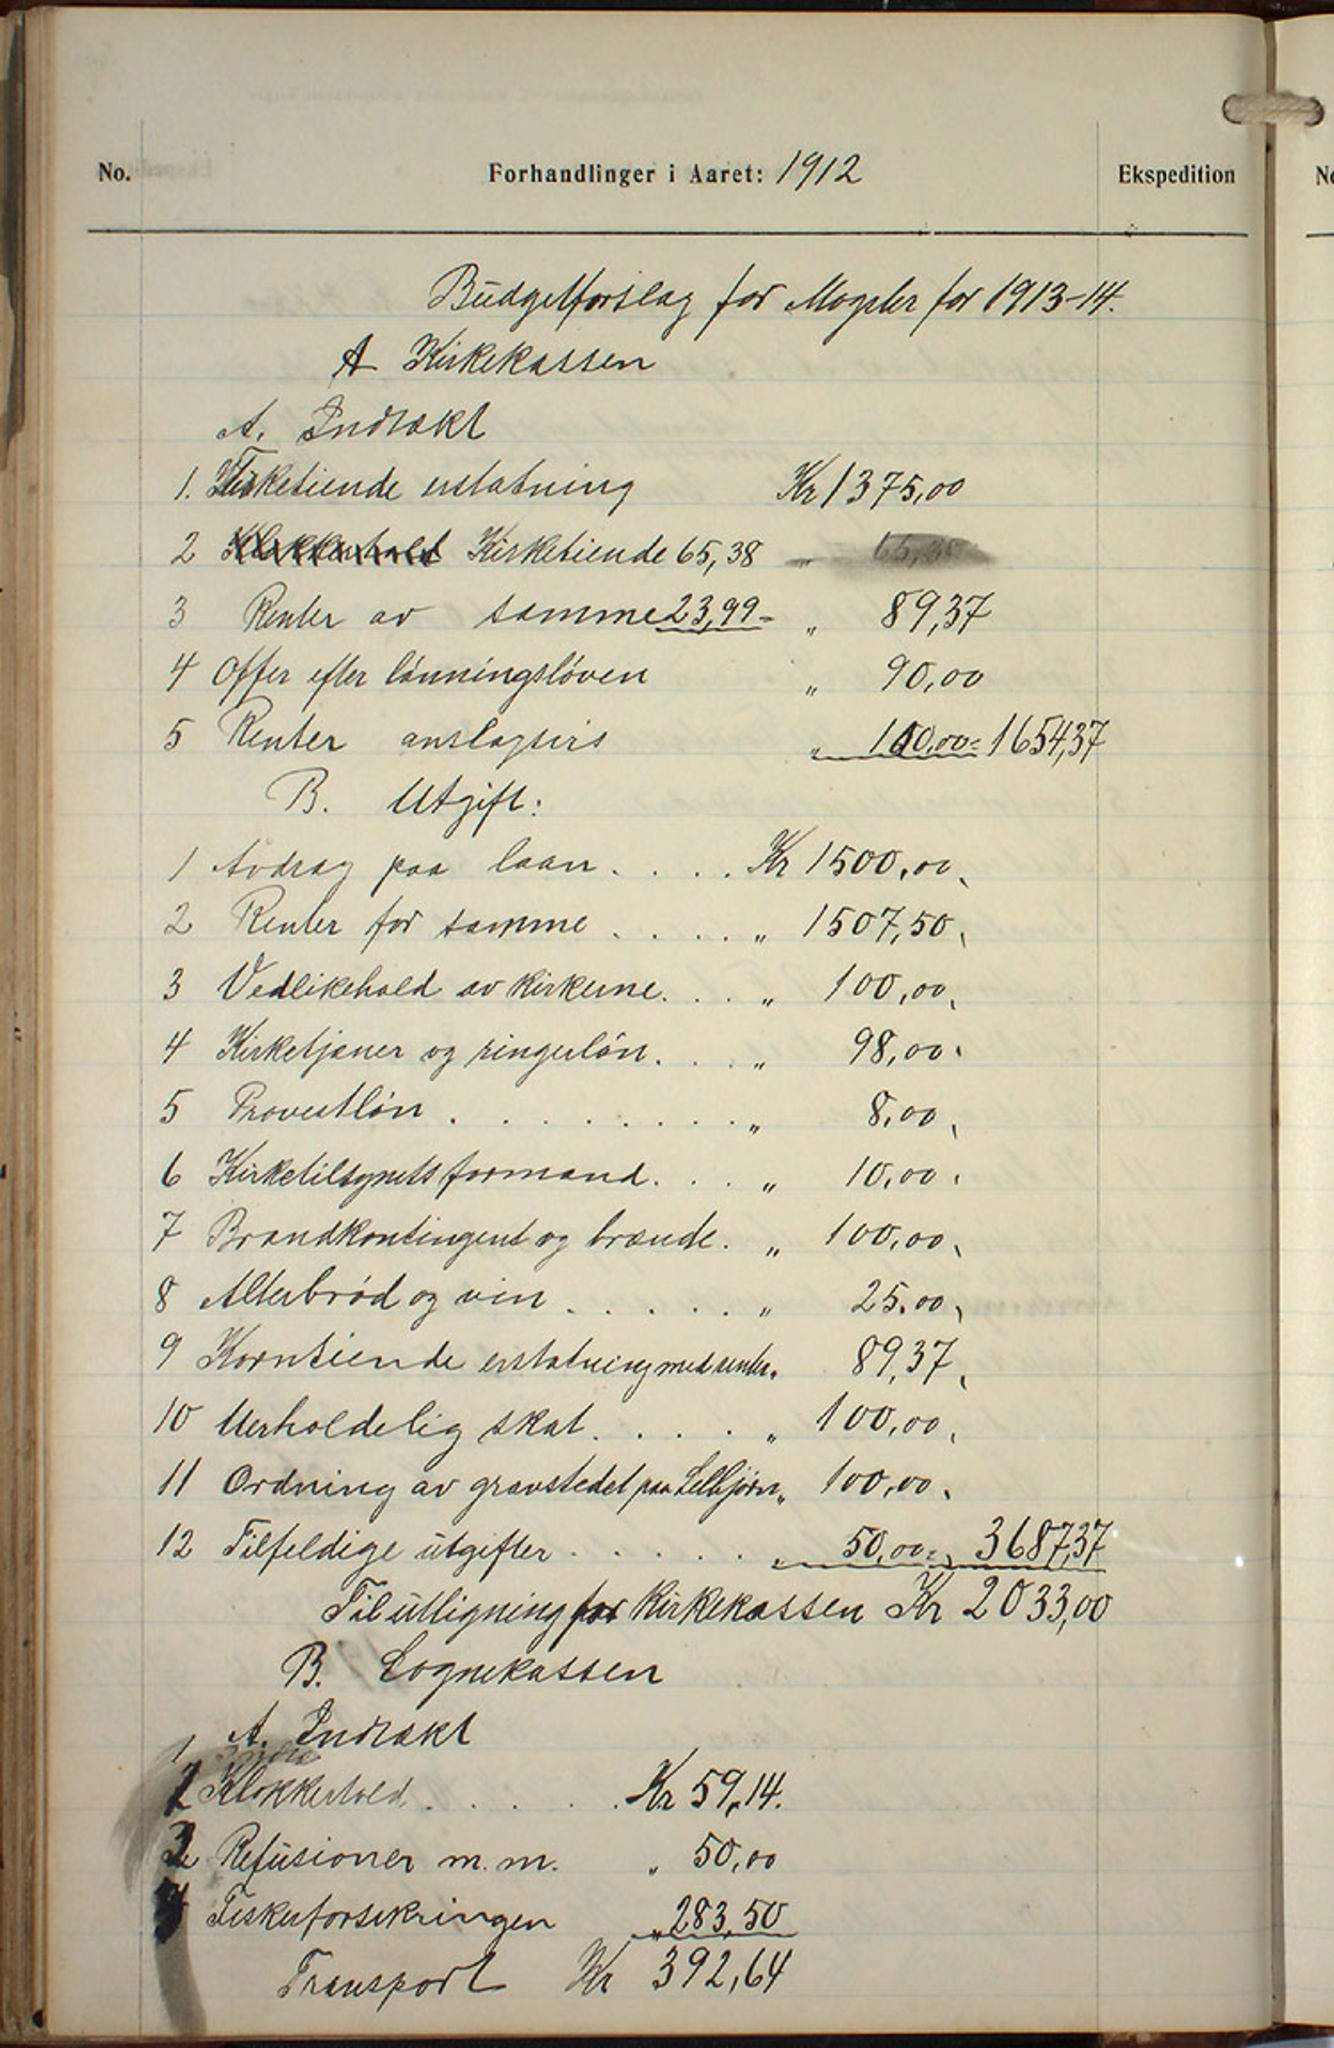 No. Forhandlinger i Aaret: 1912 Ekspedition
Budgetforslag for Møgster for 1913-14.
A Kirkekassen
A. Indtækt
1. Fisketiende erstatning Kr 1375,00
2 Klokkerhold Kirketiende 65,38 " 65,38
3 Renter av samme 23,99 = " 89,37
4 Offer efter lønningsloven " 90,00
5 Renter anslagsvis " 100,00 = 1654,37
B. Utgift:
1 Avdrag paa laan . . . . Kr 1500,00
2 Renter for samme . . . . " 1507,50
3 Vedlikehold av kirkerne . . . " 100,00
4 Kirketjener og ringerløn . . . " 98,00
5 Provestløn . . . . . . . . " 8,00
6 Kirketilsynets formand . . . " 10,00
7 Brandkontingent og brænde . " 100,00
8 Alterbrød og vin . . . . . " 25,00
9 Korntiende erstatning med renter " 89,37
10 Uerholdelig skat . . . . " 100,00
11 Ordning av gravstedet paa Selbjørn " 100,00
12 Tilfeldige utgifter . . . . . " 50,00 = 3687,37
Til utligning for Kirkekassen Kr 2033,00
B. Sognekassen
A. Indtækt
1
2 Klokkerhold . . . . . Kr 59,14.
3 Refusioner m. m. " 50,00
4 Fiskerforsikringen " 283,50
Transport Kr 392,64